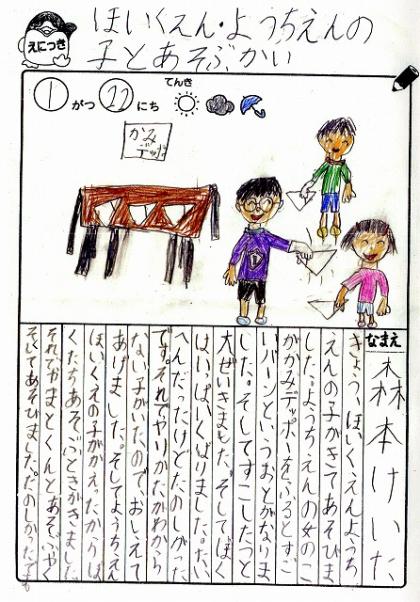 ほいくえん・ようちえんの
子とあそぶかい
えにっき
てんき
1がつ22にち
かみ
デッポ
なまえ
森本けいた
きょう、ほいくえんようち
えんの子がきてあそびま
した。ようちえんの女のこ
がかみデッポーをふるとすご
いバーンというおとがなりま
した。そしてすこしたつと
大ぜいきました。そしてぼく
はいっぱいくばりました。たい
へんだ。だけどたのしかった
です。それでやりかたがわから
ない子がいたので、おしえて
あげました。そしてようちえん
ほいくえの子がかえったからぼ
くたちあそぶときがきました
それでやまとくんとあそぶやく
そしてあそびました。たのしかったです